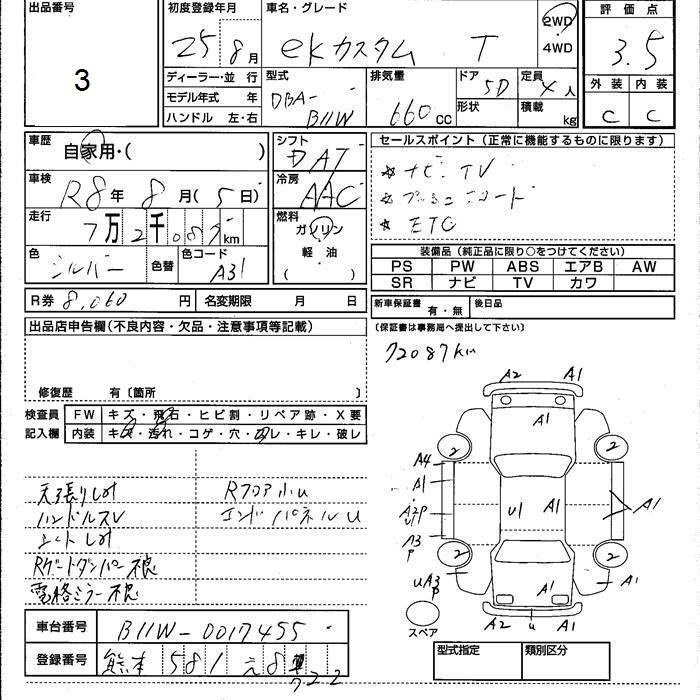 出品番号
3
初度登録年月
25年 8月
車名・グレード
ekカスタム T
2WD
4WD
評価点
3.5
外装 内装
C C
ディーラー・並行
モデル年式 年
ハンドル 左・右
型式
DBA-
B11W
排気量
660cc
ドア
5D
形状
定員
4人
積載
kg
車歴
自家用・( )
車検
R8年 8月( 5日)
走行
7万2千087km
色
シルバー
色替
色コード
A31
R券 8,060円
名変期限 月 日
シフト
DAT
冷房
AAC
燃料
ガソリン
軽油
( )
セールスポイント(正常に機能するものに限ります)
☆ ナビ TV
☆
☆ ETC
装備品(純正品に限り○をつけてください)
PS PW ABS エアB AW
SR ナビ TV カワ
新車保証書 有・無
後日品
(保証書は事務局へ提出して下さい)
72087km
出品店申告欄(不良内容・欠品・注意事項等記載)
修復歴 有〔箇所 〕
検査員
記入欄
FW キズ・飛石・ヒビ割・リペア跡・X要
内装 キズ・汚れ・コゲ・穴・コレ・キレ・破レ
天張りしみ
ハンドルスレ
シートしみ
Rゲートダンパー不良
電格ミラー不良
Rフロア小U
エンドパネルU
A2 A1
A1
2 2
A4
A1
A2P
U1
A3
P
U1 A1
A1
2 2
UA3
P
A1
A1
A2 U A1
スペア
車台番号 B11W-0017455
登録番号 熊本 581 え 8
722
型式指定 類別区分